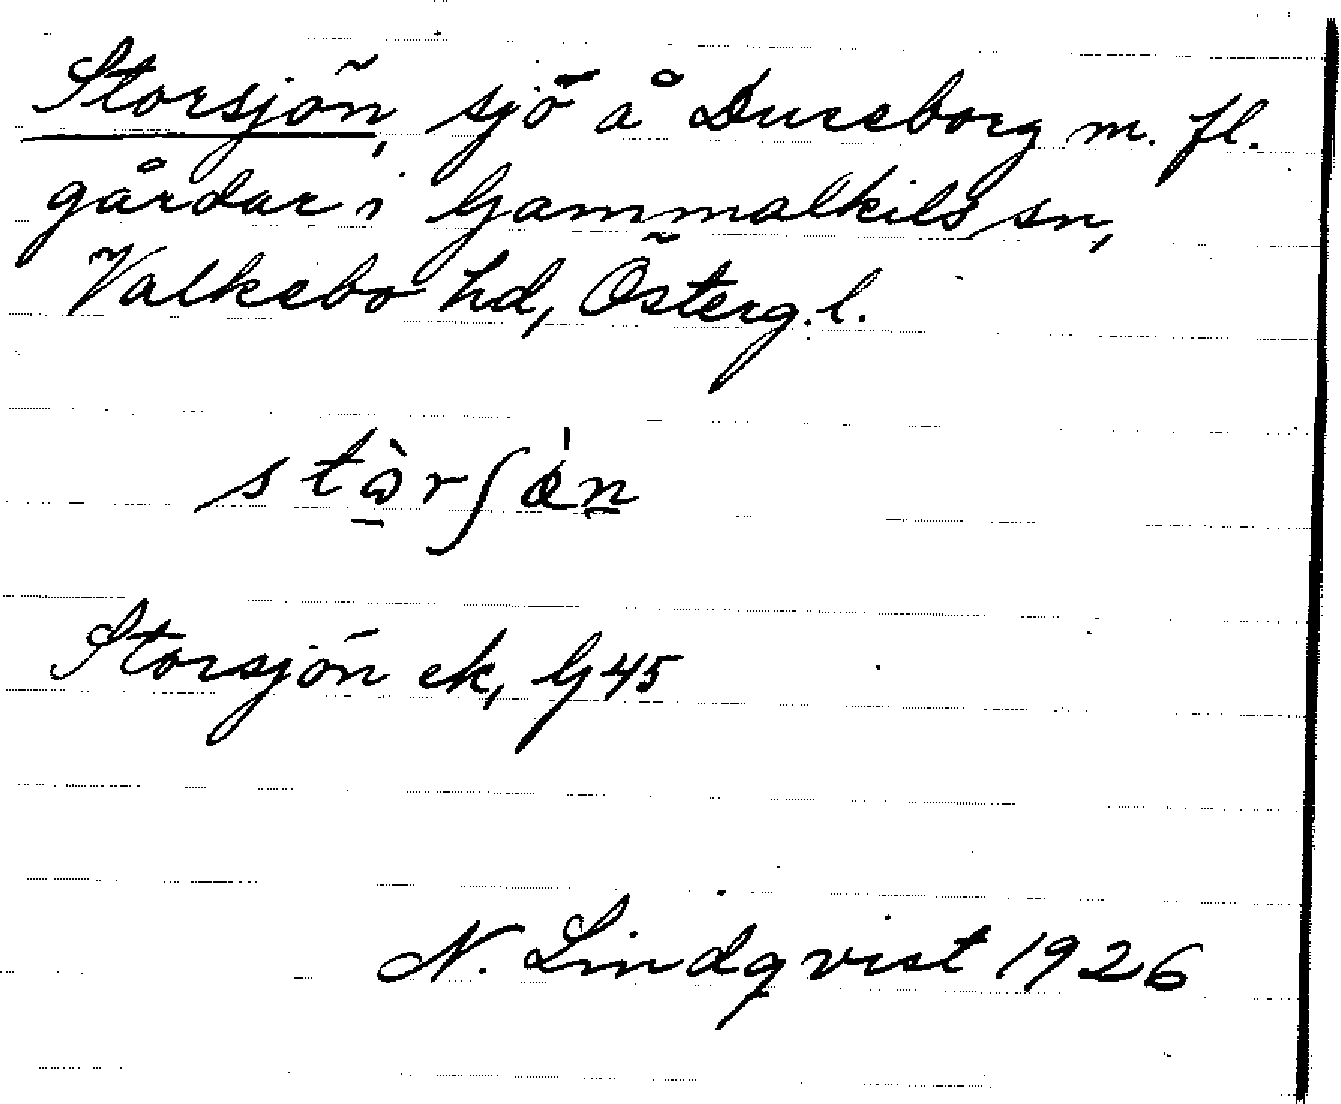 Storsjön, sjö å Dureborg m. fl.
gårdar i Gammalkils sn,
Valkebo hd, Österg. l.
Storsjön ek, G 45
N. Lindqvist 1926